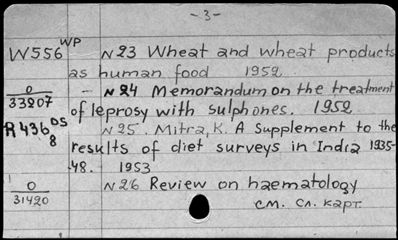 -3-
W556 WP N23 Wheat and wheat products
as human food 1952
0/33207 - N24 Memorandum on the treatment
of leprosy with sulphones. 1952
R436 DS/8 N25. Mitra, K. A Supplement to the
results of diet surveys in India 1935-
-48. 1953
0/31420 N26 Review on haematology
см. сл. карт.